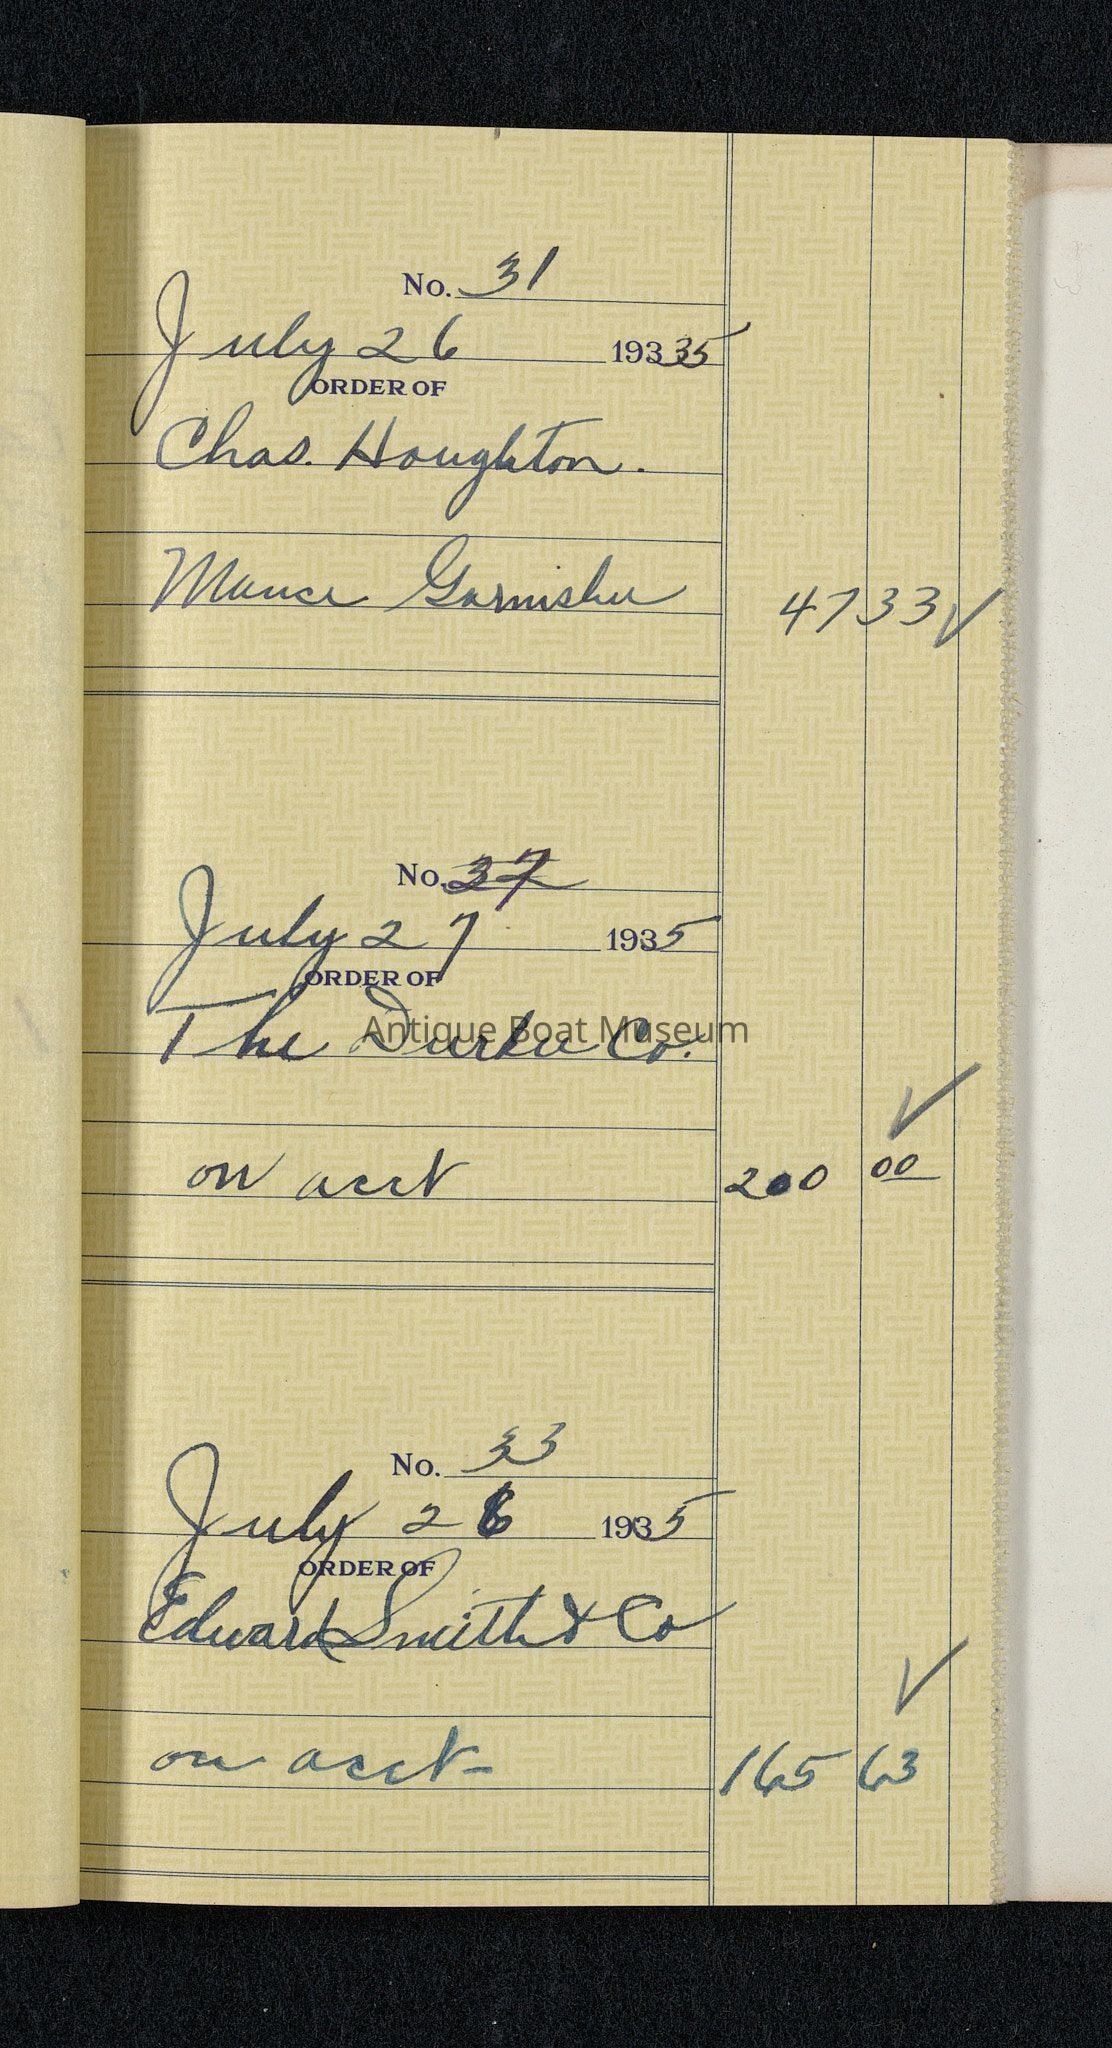 No. 31
July 26 193 35
ORDER OF
Chas. Houghton.
Mance Garnishee
47 33 ✓
No. 32
July 27 1935
ORDER OF
The Durkee Co.
Antique Boat Museum
✓
on acct 200 00
No. 33
July 26 1935
ORDER OF
Edward Smith & Co
✓
on acct- 165 63